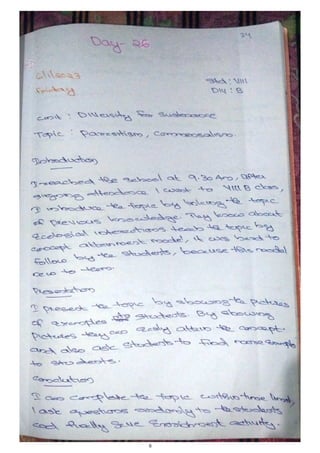 Day-26
34
6/1/2023
Friday
Std: VIII
Div: B
Unit: Diversity for Sustenance
Topic: Parasitism, Commensalism.
Introduction
I reached the school at 9.30 Am, After
signing attendance I went to VIII B class,
I introduce the topic by linking the topic
of previous knowledge. They know about
Ecological interactions teach the topic by
concept attainment model, it was hard to
follow by the students, because this model
new to them.
Presentation
I present the topic by showing the pictures
of examples students. By showing
Pictures they can easily attain the concept.
and also ask students to find more examples
to students.
Conclusion
I can complete the topic within time limit,
I ask questions randomly to the students
and finally give Enrichment activity.